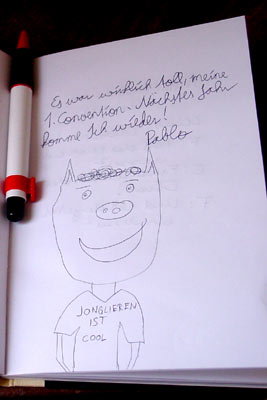 Es war wirklich toll, meine
1. Convention. Nächstes Jahr
komme Ich wieder!
Pablo
JONGLIEREN
IST
COOL